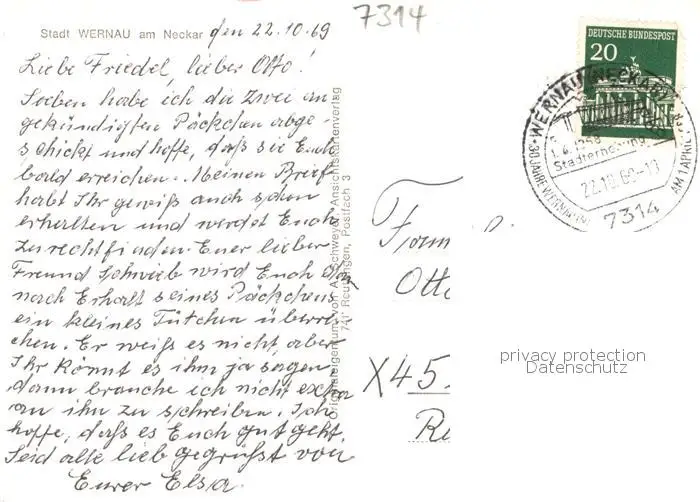 7314
Stadt WERNAU am Neckar den 22.10.69
Liebe Friedel, lieber Otto!
Soeben habe ich die zwei an
gekündigten Päckchen abge
schickt und hoffe, daß sie Euch
bald erreichen. Meinen Brief
habt Ihr gewiß auch schon
erhalten und werdet Euch
zurechtfinden. Euer lieber
Freund Schwieb wird Euch dann
nach Erhalt seines Päckchens
ein kleines Tütchen überrei-
chen. Er weiß es nicht, aber
Ihr könnt es ihm ja sagen
dann brauche ich nicht extra
an ihn zu schreiben. Ich
hoffe, daß es Euch gut geht.
Seid alle lieb gegrüßt von
Eurer Elsa.
Originaleigentum von A. Schweyer, Ansichtskartenverlag
741 Reutlingen, Postfach 3
DEUTSCHE BUNDESPOST
20
WERNAU (NECKAR)
1.4.1968
Stadterhebung
22.10.69-13
30 JAHRE WERNAU
AM 1. APRIL
7314
Fam
Otto
X45
privacy protection
Datenschutz